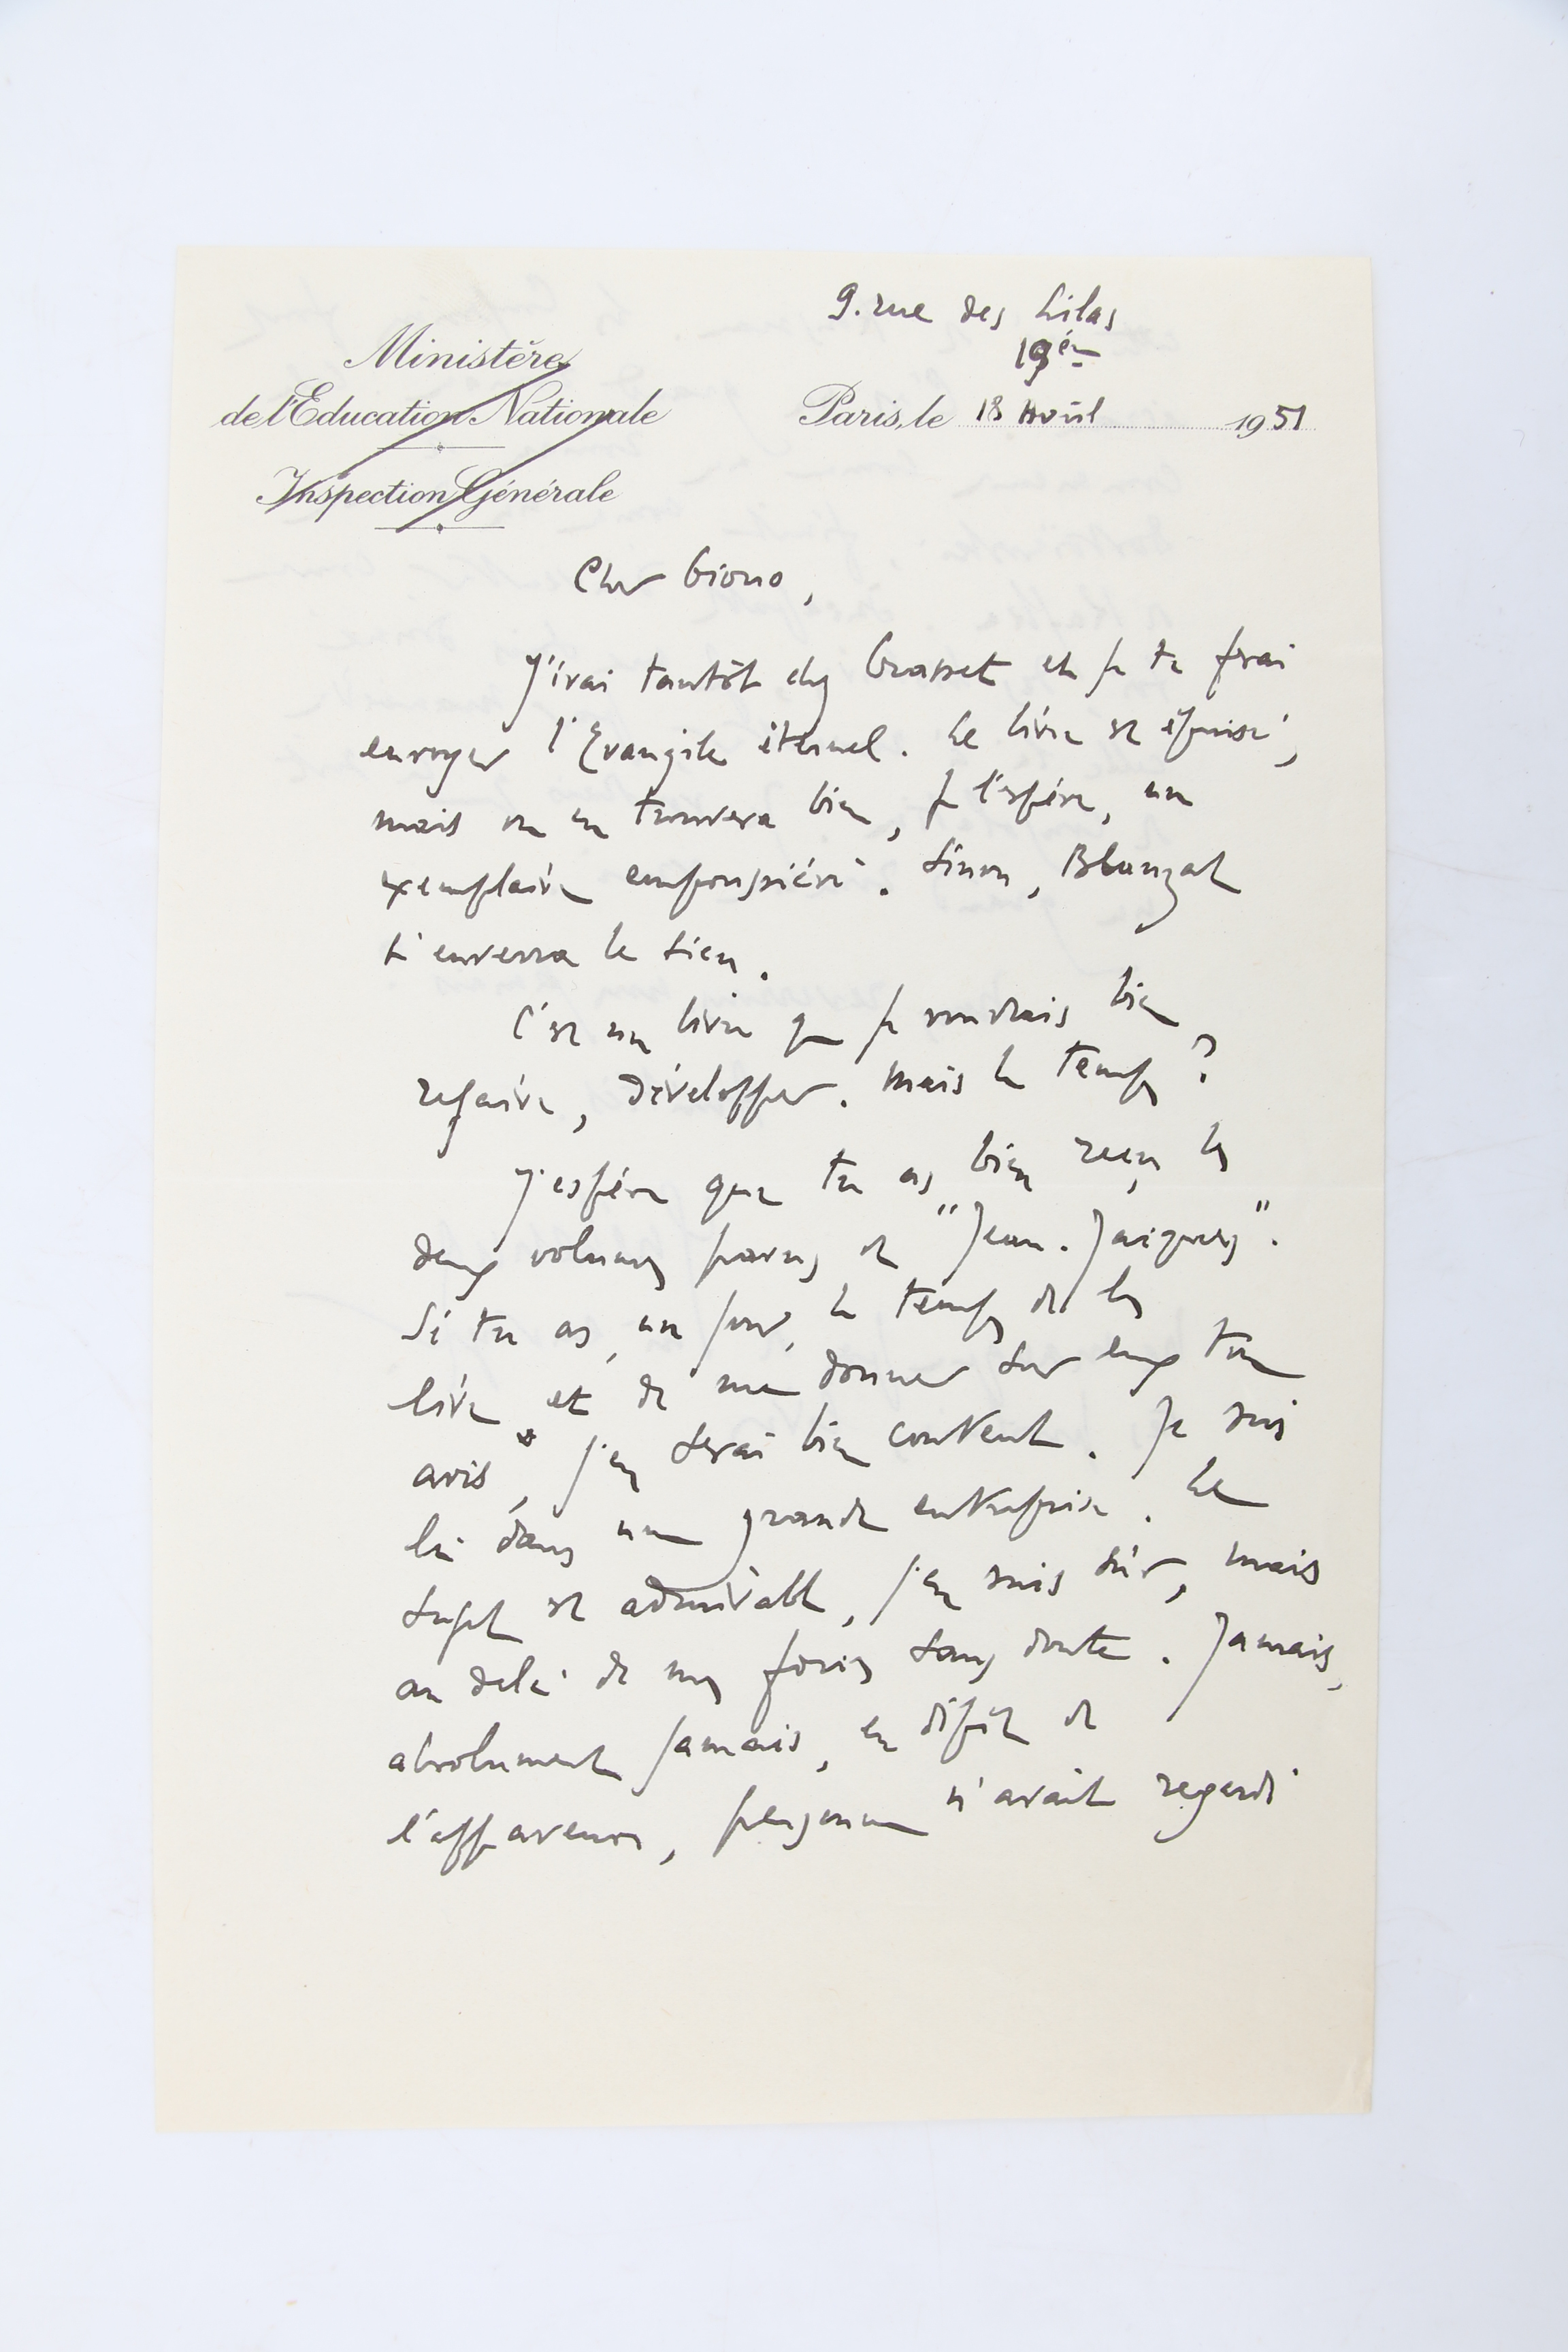 9. rue des Lilas
19ème
Ministère
de l'Education Nationale
Paris, le 18 Août 1951
Inspection Générale
Cher Giono,
J'irai tantôt chez Grasset et je te ferai
envoyer l'Evangile éternel. Le livre est épuisé,
mais on en trouvera bien, je l'espère, un
exemplaire empoussiéré. Sinon, Blanzat
t'enverra le sien.
C'est un livre que je voudrais bien
refaire, développer. Mais le temps ?
J'espère que tu as bien reçu les
deux volumes parus de "Jean-Jacques".
Si tu as, un jour, le temps de les
lire et de me donner sur eux ton
avis, j'en serai bien content. Je suis
là dans une grande entreprise. Le
sujet est admirable, j'en suis sûr, mais
au delà de mes forces sans doute. Jamais,
absolument jamais, en dépit de
l'apparence, personne n'avait regardé